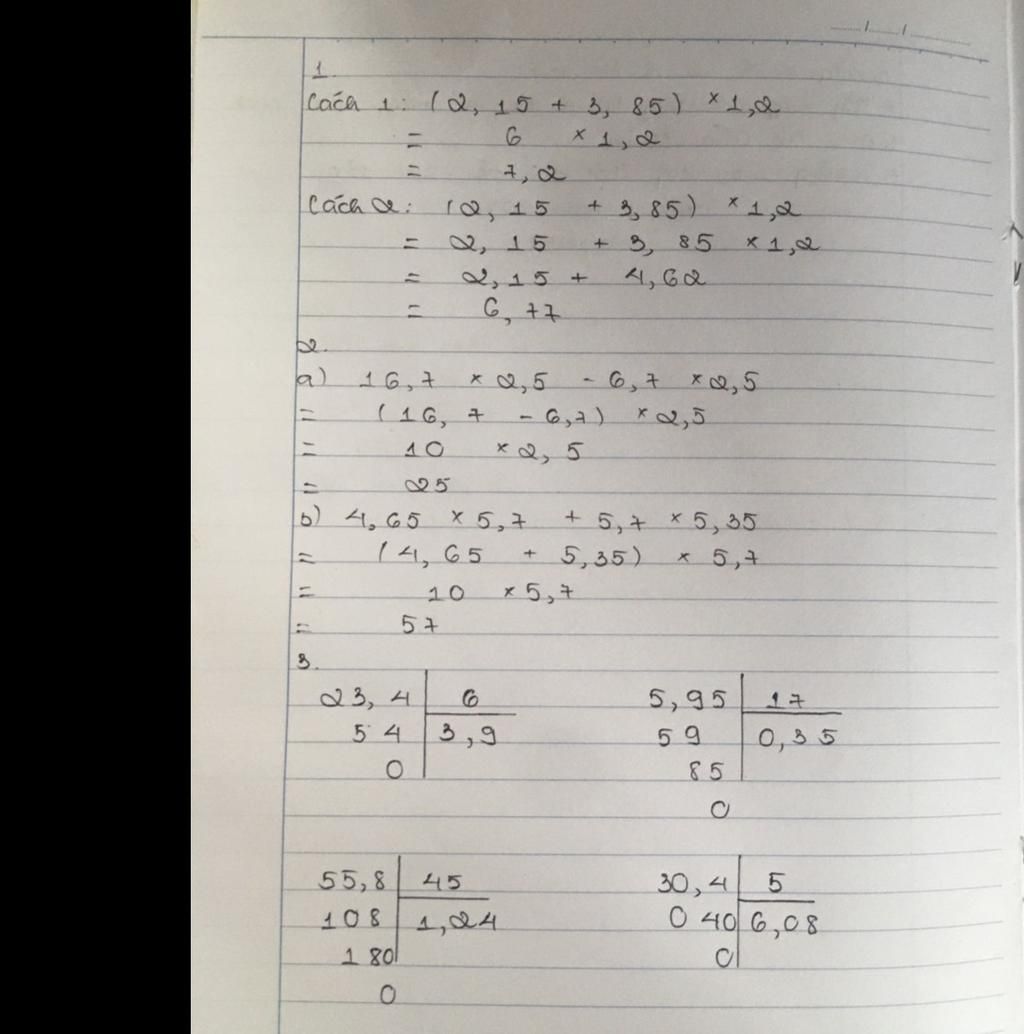 1.
Cách 1: (2,15 + 3,85) × 1,2
= 6 × 1,2
= 7,2
Cách 2: (2,15 + 3,85) × 1,2
= 2,15 + 3,85 × 1,2
= 2,15 + 4,62
= 6,77
2.
a) 16,7 × 2,5 - 6,7 × 2,5
= (16,7 - 6,7) × 2,5
= 10 × 2,5
= 25
b) 4,65 × 5,7 + 5,7 × 5,35
= (4,65 + 5,35) × 5,7
= 10 × 5,7
= 57
3.
23,4 6
54 3,9
0
5,95 17
59 0,35
85
0
55,8 45
108 1,24
180
0
30,4 5
0 40 6,08
0